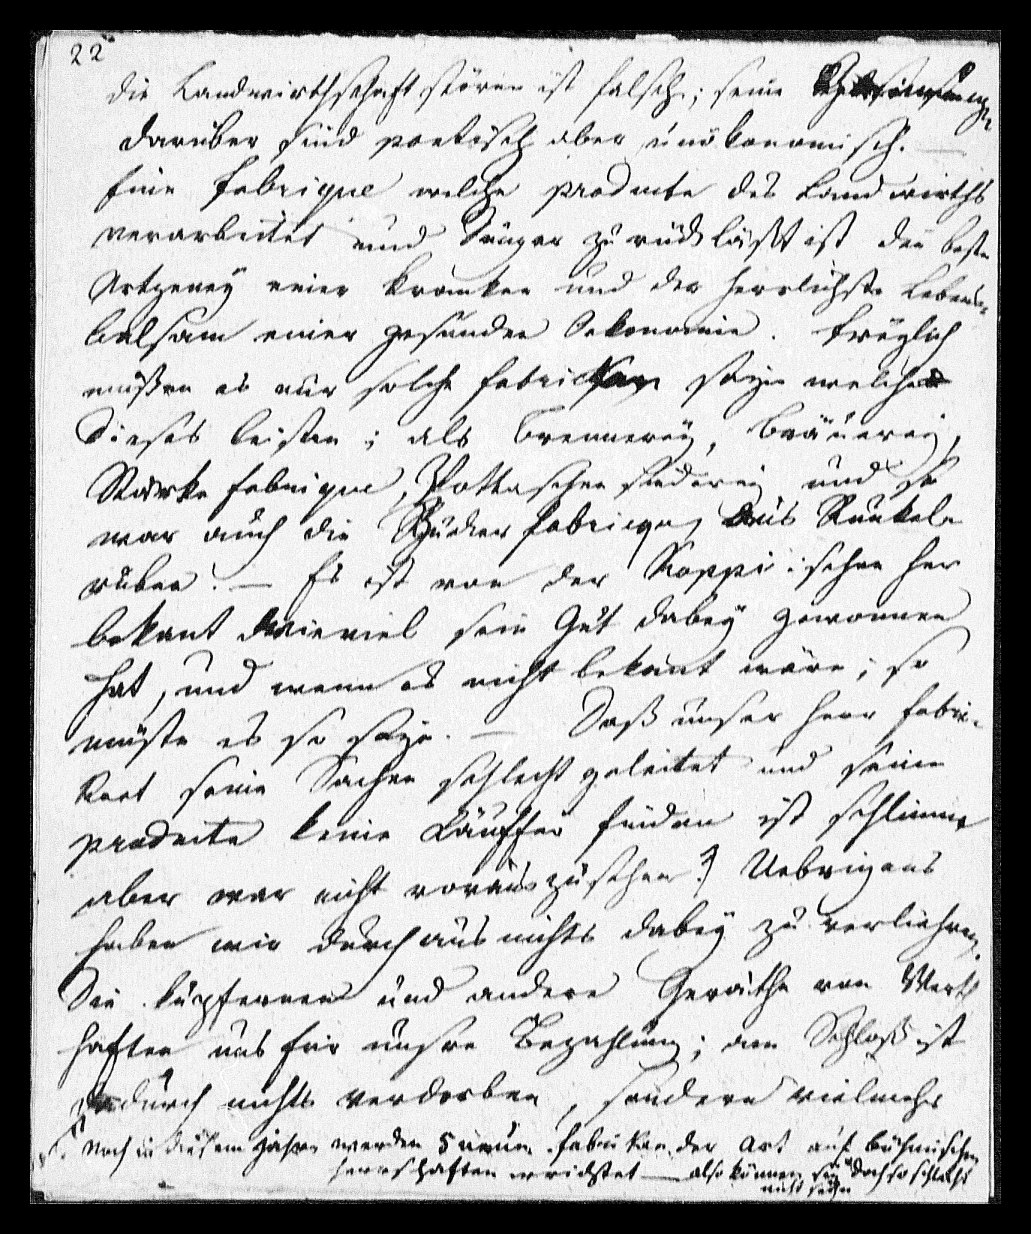 22
die Landwirthschaft stören ist falsch; seine
darüber sind poetisch aber unökonomisch. —
Eine fabrique welche producte des Landwirths
verarbeitet und Dünger zurückläßt ist die beste
Artzeney einer kranken und der herrlichste Lebens-
balsam einer gesunden Oekonomie. Freylich
müßen es nur solche fabricken seyn welche
dieses leisten; als Brennerey, Bräuerey,
Stärke fabrique, Pottaschen siederey und so
war auch die Zucker fabrique aus Runkel-
rüben. — Es ist von der Koppischen her
bekant wieviel sein Gut dabey gewonnen
hat, und wenn es nicht bekant wäre; so
müste es so seyn. — Daß unser Herr Fabri-
kant seine Sachen schlecht geleitet und seine
producte keine Käuffer finden ist schlimm
aber war nicht vorauszusehen. Uebrigens
haben wir durchaus nichts dabey zu verliehren.
Die kupfernen und andere Geräthe von Werth
haften uns für unsre Bezahlung; am Schloß ist
dadurch nichts verdorben, sondern vielmehr
Noch in diesem Jahre werden 5 neue Fabriken der Art auf böhmischen
Herrschaften errichtet — also können sie doch so schlecht
nicht seyn